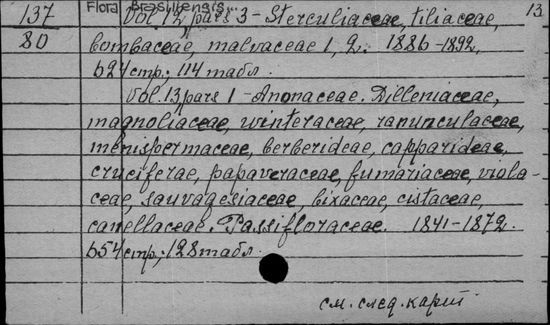 Flora Brasiliensis.
137 Vol. 12, pars 3 - Sterculiaceae, tiliaceae, 13
80 bombaceae, malvaceae 1, 2. 1886-1892.
624 стр; 114 табл.
Vol. 13 pars 1 - Anonaceae. Dilleniaceae,
magnoliaceae, winteraceae, ranunculaceae,
menispermaceae, berberideae, capparideae,
cruciferae, papaveraceae, fumariaceae, viola-
ceae, sauvagesiaceae, bixaceae, cistaceae,
canellaceae. Passifloraceae. 1841-1872.
654 стр; 128 табл.
см. след. карт